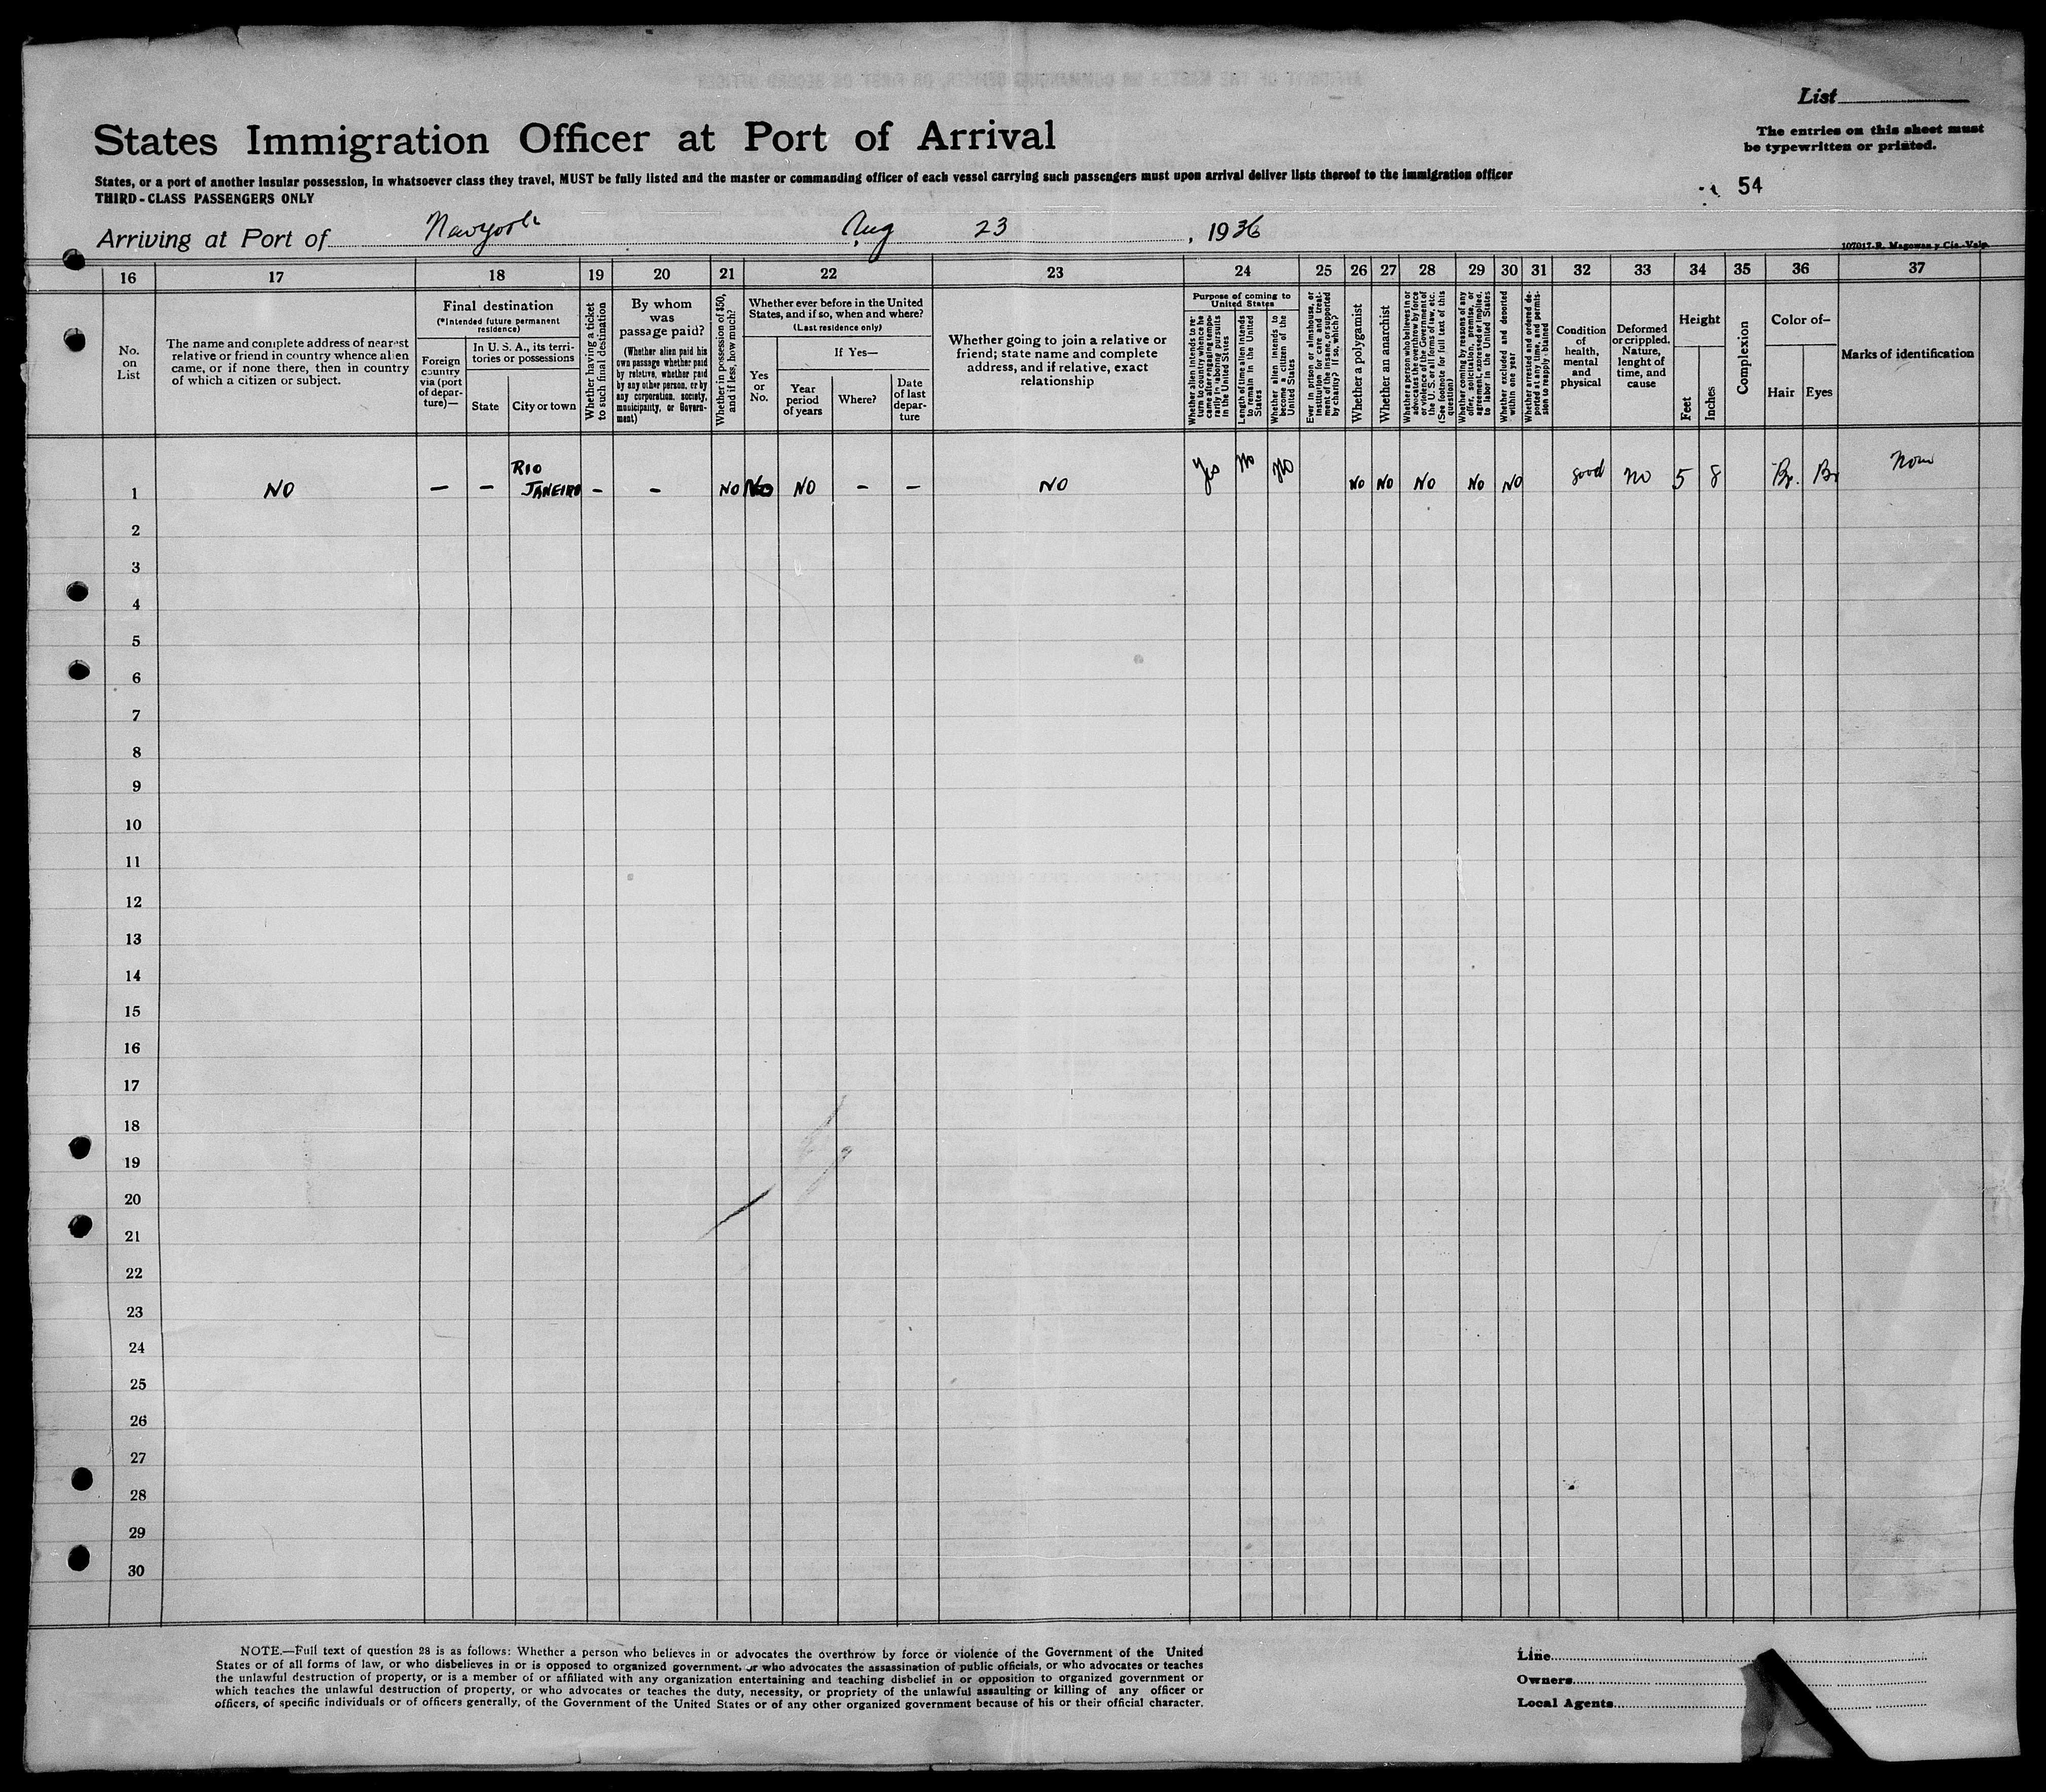 List
States Immigration Officer at Port of Arrival
The entries on this sheet must
be typewritten or printed.
States, or a port of another insular possession, in whatsoever class they travel, MUST be fully listed and the master or commanding officer of each vessel carrying such passengers must upon arrival deliver lists thereof to the immigration officer
THIRD-CLASS PASSENGERS ONLY
54
Arriving at Port of Newyork Aug 23, 1936
107017-R. Magowan y Cia.-Valp.
16 17 18 19 20 21 22 23 24 25 26 27 28 29 30 31 32 33 34 35 36 37
No.
on
List
The name and complete address of nearest
relative or friend in country whence alien
came, or if none there, then in country
of which a citizen or subject.
Final destination
(*Intended future permanent
residence)
Foreign
country
via (port
of depar-
ture)—
In U. S. A., its terri-
tories or possessions
State
City or town
Whether having a ticket
to such final destination
By whom
was
passage paid?
(Whether alien paid his
own passage whether paid
by relative, whether paid
by any other person, or by
any corporation, society,
municipality, or Govern-
ment)
Whether in possession of $50,
and if less, how much?
Whether ever before in the United
States, and if so, when and where?
(Last residence only)
Yes
or
No.
If Yes—
Year
period
of years
Where?
Date
of last
depar-
ture
Whether going to join a relative or
friend; state name and complete
address, and if relative, exact
relationship
Purpose of coming to
United States
Whether alien intends to re-
turn to country whence he
came after engaging tempo-
rarily in laboring pursuits
in the United States
Length of time alien intends
to remain in the United
States
Whether alien intends to
become a citizen of the
United States
Ever in prison or almshouse, or
institution for care and treat-
ment of the insane, or supported
by charity? If so, which?
Whether a polygamist
Whether an anarchist
Whether a person who believes in or
advocates the overthrow by force
or violence of the Government of
the U. S. or all forms of law, etc.
(See footnote for full text of this
question)
Whether coming by reasons of any
offer, solicitation, promise, or
agreement, expressed or implied,
to labor in the United States
Whether excluded and deported
within one year
Whether arrested and ordered de-
ported at any time, and permis-
sion to reapply obtained
Condition
of
health,
mental
and
physical
Deformed
or crippled.
Nature,
lenght of
time, and
cause
Height
Feet
Inches
Complexion
Color of—
Hair
Eyes
Marks of identification
1 NO — — RIO JANEIRO — — NO No NO — — NO Yes No No NO NO NO NO NO good no 5 8 Br. Br
2
3
4
5
6
7
8
9
10
11
12
13
14
15
16
17
18
19
20
21
22
23
24
25
26
27
28
29
30
NOTE.—Full text of question 28 is as follows: Whether a person who believes in or advocates the overthrow by force or violence of the Government of the United
States or of all forms of law, or who disbelieves in or is opposed to organized government, or who advocates the assassination of public officials, or who advocates or teaches
the unlawful destruction of property, or is a member of or affiliated with any organization entertaining and teaching disbelief in or opposition to organized government or
which teaches the unlawful destruction of property, or who advocates or teaches the duty, necessity, or propriety of the unlawful assaulting or killing of any officer or
officers, of specific individuals or of officers generally, of the Government of the United States or of any other organized government because of his or their official character.
Line
Owners
Local Agents